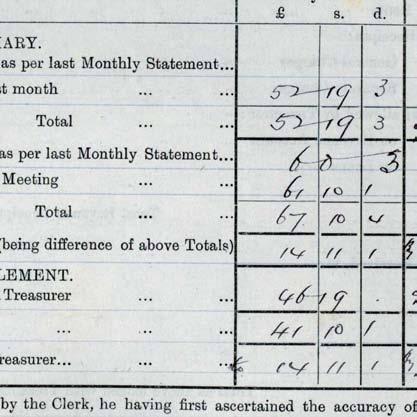 £ s. d.
MARY.
as per last Monthly Statement...
st month ... ... 52 19 3
Total ... ... 52 19 3
as per last Monthly Statement... 6 0 3
Meeting ... ... 61 10 1
Total ... ... 67 10 4
(being difference of above Totals) 14 11 1
LEMENT.
Treasurer ... ... 46 19 .
... ... 41 10 1
reasurer... ... 14 11 1
by the Clerk, he having first ascertained the accuracy of